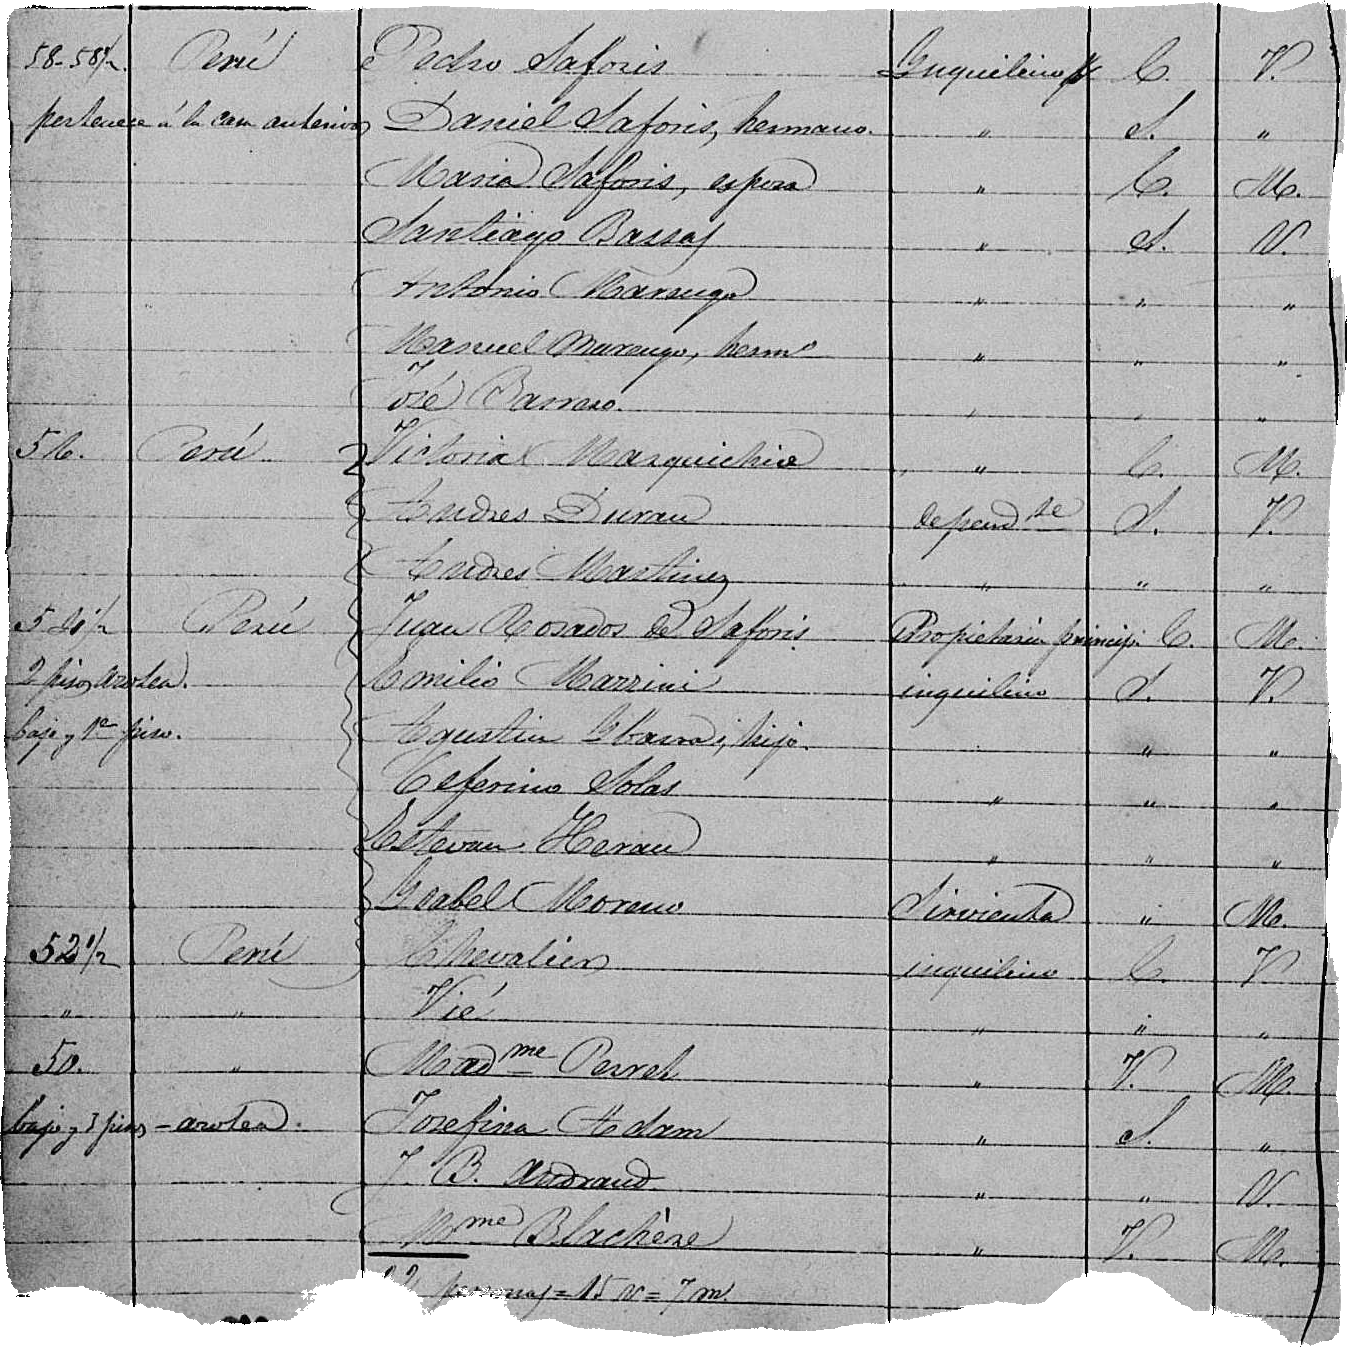 58-58½. Perú Pedro Saforis Inquilino C. V.
pertenece á la casa anterior Daniel Saforis, hermano. " S. "
Maria Saforis, esposa " C. M.
Santiago Bassas " S. V.
Antonio Marengo " " "
Manuel Marengo, herm° " " "
José Barrero. " " "
56. Perú Victoria " C. M.
Andres Duran depend te S. V.
Andres Martinez " " "
54½ Perú Juan Rosados de Saforis Propietaria princip. C. M.
2 piso, azotea. Emilio Mazzini inquilino S. V.
bajo y 1er piso. Agustin Ybarra, hijo. " " "
Ceferino Solas " " "
Estevan Heran " " "
Ysabel Moreno Sirvienta " M.
52½ Perú Chevalier inquilino C. V.
" " Vié " " "
50. " Mad me Perret " V. M.
bajo y 3 pisos - azotea. Josefina Adam " S. "
J. B. Andraud " " V.
Mme Blachère " V. M.
22 personas = 15 v = 7 m.